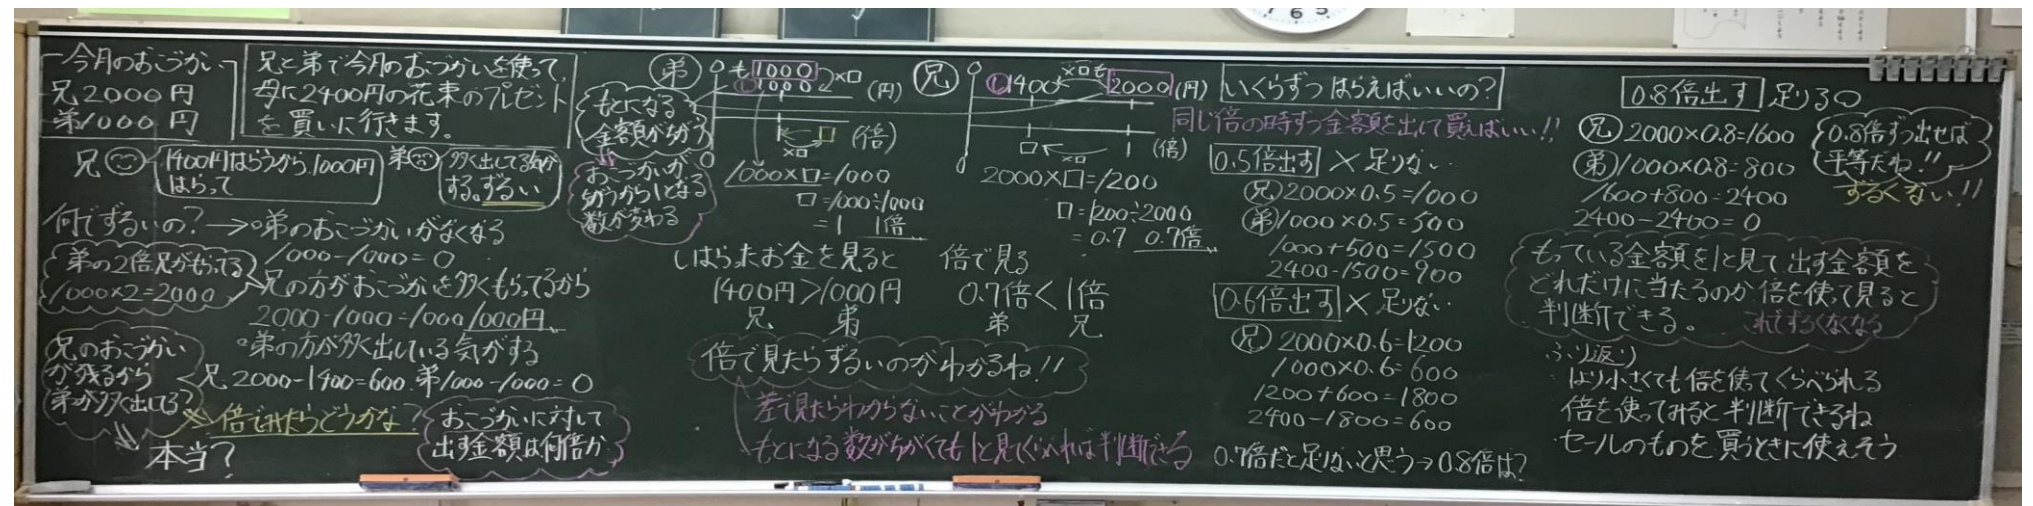 今月のおこづかい
兄2000円
弟1000円
兄と弟で今月のおこづかいを使って、
母に2400円の花束のプレゼント
を買いに行きます。
兄
1400円はらうから1000円
はらって
弟
多く出してる気が
する。ずるい
何でずるいの?→◦弟のおこづかいがなくなる
1000-1000=0
弟の2倍兄がもってる
1000×2=2000
兄の方がおこづかいを多くもらってるから
2000-1000=1000 1000円
◦弟の方が多く出している気がする
兄2000-1400=600 弟1000-1000=0
兄のおこづかい
が残るから
弟が多く出してる?
本当?
倍でみたらどうかな?
おこづかいに対して
出す金額は何倍か
弟
も1000
①1000
×□
(円)
□
(倍)
×□
もとになる
金額がちがう
おこづかいが
ちがうから1となる
数が変わる
1000×□=1000
□=1000÷1000
=1 1倍
兄
①1400
×□
も2000
(円)
□
×□
1
(倍)
2000×□=1200
□=1200÷2000
=0.7 0.7倍
しはらったお金を見ると
1400円>1000円
兄 弟
倍で見る
0.7倍<1倍
弟 兄
倍で見たらずるいのがわかるね!!
差で見たらわからないことがわかる
もとになる数がちがくても1と見てくらべれば判断できる
いくらずつはらえばいいの?
同じ倍の時ずつ金額を出して買えばいい!!
0.5倍出す × 足りない
兄2000×0.5=1000
弟1000×0.5=500
1000+500=1500
2400-1500=900
0.6倍出す × 足りない
兄2000×0.6=1200
1000×0.6=600
1200+600=1800
2400-1800=600
0.7倍だと足りないと思う→0.8倍は?
0.8倍出す 足りる○
兄2000×0.8=1600
弟1000×0.8=800
1600+800=2400
2400-2400=0
0.8倍ずつ出せば
平等だね!!
ずるくない!!
もっている金額を1と見て出す金額を
どれだけに当たるのか倍を使って見ると
判断できる。
これでずるくなくなる
ふり返り
・1より小さくても倍を使ってくらべられる
倍を使ってみると判断できるね
・セールのものを買うときに使えそう